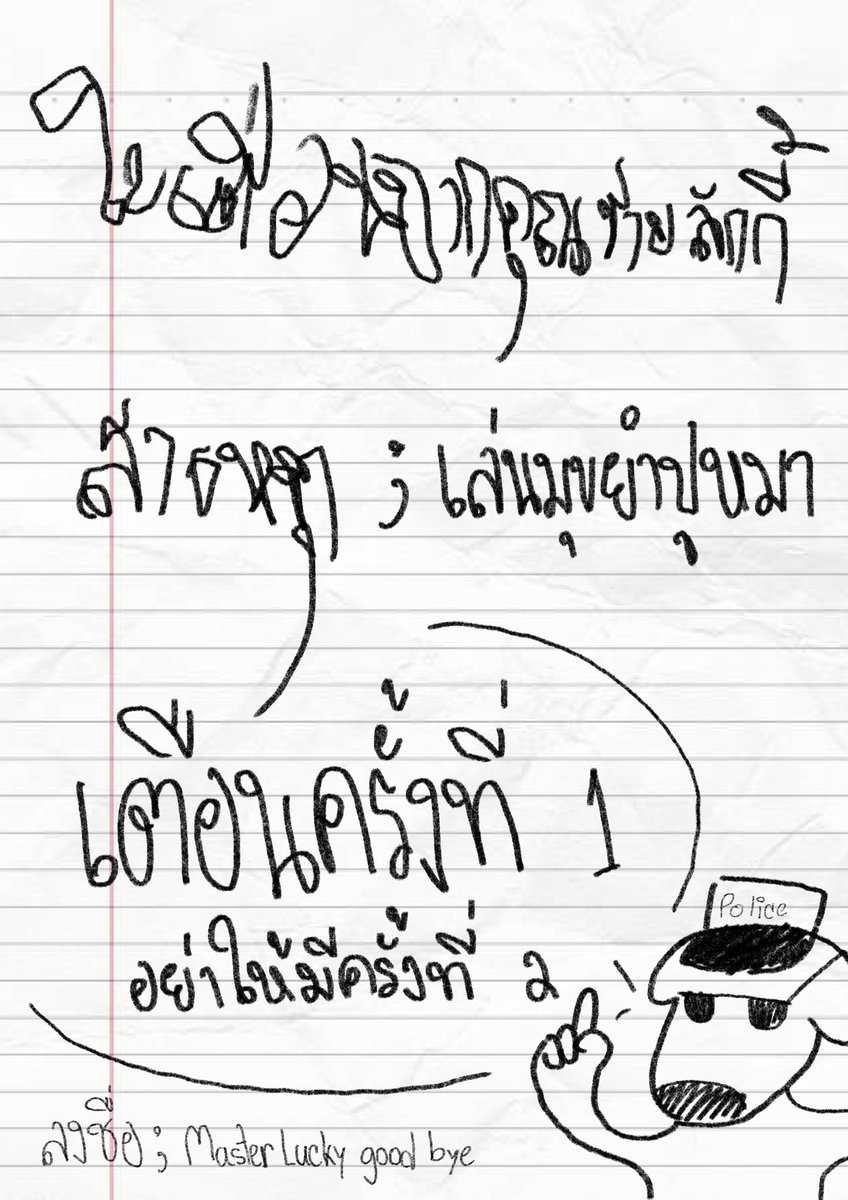 ใบเตือนจากคุณชายลักกี้
สาเหตุ ; เล่นมุขยำปูหมา
เตือนครั้งที่ 1
อย่าให้มีครั้งที่ 2
Police
ลงชื่อ ; Master Lucky good bye